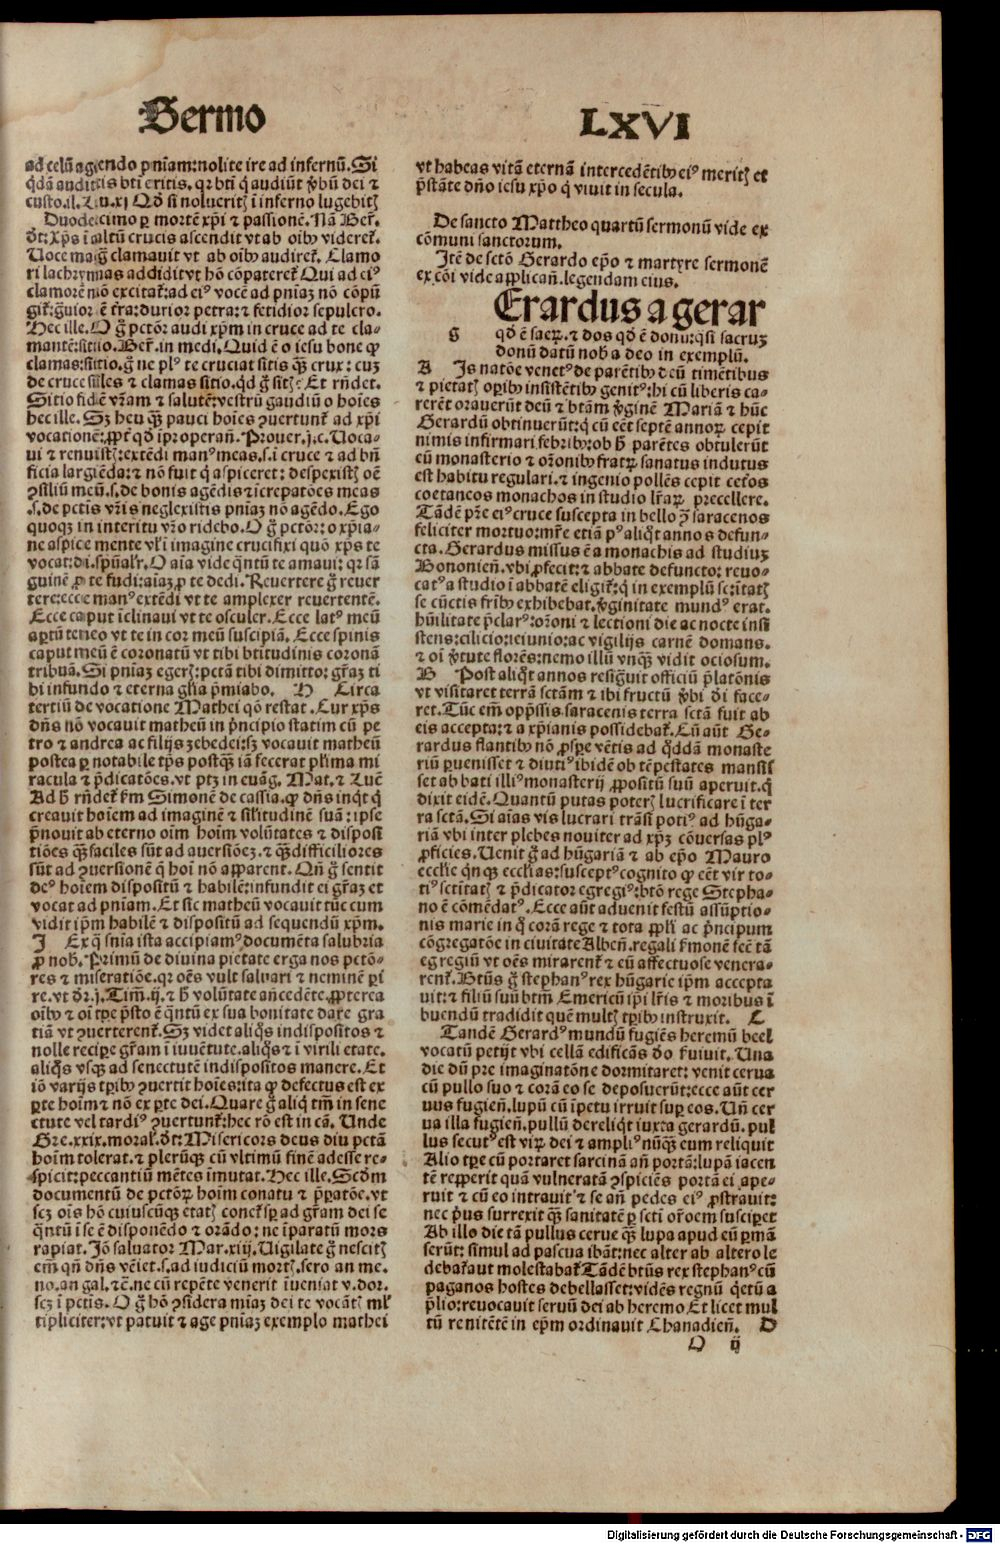 Sermo
LXVI
ad celū agendo pniam: nolite ire ad infernū. Si
q̄dā auditis bti eritis. qr bti q̇ audiūt v̇bū dei ⁊
custo. il. Lu. xj Qd̓ si nolueritꝭ ī inferno lugebitꝭ
Duodecimo ꝑ mortē xp̄i ⁊ passionē. Nā Ber̄.
d̓t: Xp̄s ī altū crucis ascendit vt ab oibꝰ videret̓.
Uoce mag̓ clamauit vt ab oibꝰ audiret̓. Clamo
ri lachrymas addidit vt hō cōpateret̓ Qui ad eiꝰ
clamorē nō excitat̓: ad eiꝰ vocē ad pniaꝫ nō cōpū
git̓: g̓uior ē t̓ra: durior petra: ⁊ fetidior sepulcro.
Hec ille. O g̓ pctōr audi xp̄m in cruce ad te cla⸗
mantē: sitio. Ber̄. in medi. Quid ē o iesu bone ꝙ
clamas: sitio. g̓ ne plꝰ te cruciat sitis qꝫ crux: cuꝫ
de cruce siles ⁊ clamas sitio. qd̓ g̓ sitis: Et rn̄det.
Sitio fidē vr̄am ⁊ salutē: vestrū gaudiū o hoies
hec ille. Sꝫ heu qꝫ pauci hoies ꝯuertunt̓ ad xp̄i
vocationē: ꝓpt̓ qd̓ ip̄i operan̄. Prouer. j. c. Uoca⸗
ui ⁊ renuistꝭ: extēdi manꝰ meas. s. i cruce ⁊ ad bn̄
ficia largiēda: ⁊ nō fuit q̇ aspiceret: despexistꝭ oē
ꝯsiliū meū. s. de bonis agēdis ⁊ icrepatōes meas
. s. de pctīs vr̄is neglexistis pniaꝫ nō agēdo. Ego
quoqꝫ in interitu vr̄o ridebo. O g̓ pctōr: o xp̄ia⸗
ne aspice mente vl̓ i imagine crucifixi quō xp̄s te
vocat: di. spūalr̓. O aīa vide q̄ntū te amaui: qr sā
guinē ꝓ te fudi: aīaꝫ ꝓ te dedi. Reuertere g̓ reuer
tere: ecce manꝰ extēdi vt te amplexer reuertentē.
Ecce caput īclinaui vt te osculer. Ecce latꝰ meū
aꝑtū teneo vt te in cor meū suscipiā. Ecce spinis
caput meū ē coronatū vt tibi btitudinis coronā
tribuā. Si pniaꝫ egerꝭ: pctā tibi dimitto: gr̄aꝫ ti
bi infundo ⁊ eterna gl̓ia p̄miabo. H Circa
tertiū de vocatione Mathei qō restat. Cur xp̄s
dn̄s nō vocauit matheū in p̄ncipio statim cū pe
tro ⁊ andrea ac filijs ꝫebedei: sꝫ vocauit matheū
postea ꝑ notabile tp̄s postqꝫ iā fecerat pl̓ima mi
racula ⁊ p̄dicatōes. vt ptꝫ in euāg. Mat. ⁊ Luē
Ad h̓ rn̄det̓ fm Simonē de cassia. ꝙ dn̄s inq̇t q̇
creauit hoiem ad imaginē ⁊ sil̓itudinē suā: ipse
p̄nouit ab eterno oīm hoim volūtates ⁊ dispositi
tiōes qꝫ faciles sūt ad auersiōeꝫ. ⁊ qꝫ difficiliores
sūt ad ꝯuersionē q̇ hoi nō apparent. Qn̄ g̓ sentit
deꝰ hoiem dispositū ⁊ habilē: infundit ei gr̄aꝫ et
vocat ad pniam. Et sic matheū vocauit tūc cum
vidit ip̄m habilē ⁊ dispositū ad sequendū xp̄m.
J Ex q̇ snia ista accipiamꝰ documēta salubria
ꝓ nob̓. Primū de diuina pietate erga nos pctō⸗
res ⁊ miseratiōe. qr oēs vult saluari ⁊ neminē ꝑi
re. vt d̓r. j. Tim̄. ij. ⁊ h̓ volūtate an̄cedēte. ꝓpterea
oibꝰ ⁊ oi tꝑe p̄sto ē q̄ntū ex sua bonitate dare gra
tiā vt ꝯuerterent̓. Sꝫ videt aliq̓s indispositos ⁊
nolle recipe gr̄am ī iuuētute. aliq̓s ⁊ ī virili etate.
aliq̓s vsqꝫ ad senectutē indispositos manere. Et
iō varijs tꝑibꝰ ꝯuertit hoies: ita ꝙ defectus est ex
ꝑte hoim ⁊ nō ex ꝑte dei. Quare g̓ aliq̇ tm̄ in sene
ctute vel tardiꝰ ꝯuertunt̓: hec rō est in cā. Unde
Gre. xxix. moral̓. d̓t: Misericors deus diu pctā
hoim tolerat. ⁊ plerūqꝫ cū vltimū finē adesse re⸗
spicit: peccantiū mētes īmutat. Hec ille. Scd̓m
documentū de pctōꝝ hoim conatu ⁊ p̄ꝑatōe. vt
scꝫ oīs hō cuiuscūqꝫ etatꝭ conet̓ sꝑ ad gr̄am dei se
q̄ntū ī se ē disponēdo ⁊ orādo: ne īparatū mors
rapiat. Jō saluator Mar. xiij. Uigilate g̓ nescitꝭ
em̄ qn̄ dn̄s vēiet. s. ad iudiciū mortꝭ. sero an me.
no. an gal. ⁊c̄. ne cū repēte venerit īueniat v. dor.
scꝫ ī pctīs. O g̓ hō ꝯsidera miaꝫ dei te vocātꝭ ml̓
tipliciter: vt patuit ⁊ age pniaꝫ exemplo mathei
vt habeas vitā eternā intercedētibꝰ eiꝰ meritꝭ et
p̄stāte dn̄o iesu xp̄o q̇ viuit in secula.
De sancto Mattheo quartū sermonū vide ex
cōmuni sanctorum.
Jtē de sctō Gerardo ep̄o ⁊ martyre sermonē
ex cōi vide applican̄. legendam eius.
Erardus a gerar
g qd̓ ē sacꝝ. ⁊ dos qd̓ ē donū: q̇si sacruꝫ
donū datū nob̓ a deo in exemplū.
A Js natōe venetꝰ de parētibꝰ deū timētibus
⁊ pietatꝭ oꝑibꝰ insistētibꝰ genitꝰ: hi cū liberis ca⸗
rerēt orauerūt deū ⁊ btām v̇ginē Mariā ⁊ hūc
Gerardū obtinuerūt: q̇ cū eēt septē annoꝝ cepit
nimis infirmari febribꝰ: ob h̓ parētes obtulerūt
eū monasterio ⁊ orōnibꝰ fratꝝ sanatus indutus
est habitu regulari. ⁊ ingenio pollēs cepit cet̓os
coetaneos monachos in studio lr̄aꝝ precellere.
Tādē pr̄e eiꝰ cruce suscepta in bello ꝯ̄ saracenos
feliciter mortuo: mr̄e etiā pꝰ aliq̇t annos defun⸗
cta. Gerardus missus ē a monachis ad studiuꝫ
Bononien̄. vbi ꝓfecit: ⁊ abbate defuncto: reuo⸗
catꝰ a studio ī abbatē eligit̓: q̇ in exemplū sc̄itatꝭ
se cūctis fr̄ibꝰ exhibebat. v̇ginitate mundꝰ erat.
hūilitate p̄clarꝰ: orōni ⁊ lectioni die ac nocte insi
stens: cilicio: ieiunio: ac vigilijs carnē domans.
⁊ oi v̇tute florēs: nemo illū vnqꝫ vidit ociosum.
B Post aliq̇t annos resig̓uit officiū p̄latōnis
vt visitaret terrā sctām ⁊ ibi fructū v̇bi d̓i face⸗
ret. Tūc em̄ opp̄ssis saracenis terra sctā fuit ab
eis accepta: ⁊ a xp̄ianis possidebat̓. Cū aūt Ge⸗
rardus flantibꝰ nō ꝓspe vētis ad q̇ddā monaste
riū ꝑuenisset ⁊ diutiꝰ ibidē ob tēpestates mansis
set abbati illiꝰ monasterij ꝓpositū suū aperuit. q̇
dixit eidē. Quantū putas poterꝭ lucrificare ī ter
ra sctā. Si aīas vis lucrari trāsi potiꝰ ad hūga⸗
riā vbi inter plebes nouiter ad xp̄ꝫ cōuersas plꝰ
ꝓficies. Uenit g̓ ad hūgariā ⁊ ab ep̄o Mauro
ecclie q̇nqꝫ eccl̓ias: susceptꝰ cognito ꝙ eēt vir to⸗
tiꝰ sctītatꝭ ⁊ p̄dicator egregiꝰ: btō rege Stepha⸗
no ē cōmēdatꝰ. Ecce aūt aduenit festū assūptio⸗
nis marie in q̇ corā rege ⁊ tota ppl̓i ac p̄ncipum
cōgregatōe in ciuitate Alben̄. regali ẜmonē fec̄ tā
egregiū vt oēs mirarent̓ ⁊ eū affectuose venera⸗
rent̓. Btūs g̓ stephanꝰ rex hūgarie ip̄m accepta
uit: ⁊ filiū suū btm̄ Emericū ip̄i lr̄is ⁊ moribus ī
buendū tradidit quē multꝭ tꝑibꝰ instruxit. C
Tandē Gerardꝰ mundū fugiēs heremū beel
vocatū petijt vbi cellā edificās d̓o ẜuiuit. Una
die dū pre imaginatōne dormitaret: venit cerua
cū pullo suo ⁊ corā eo se deposuerūt: ecce aūt cer
uus fugien̄. lupū cū īpetu irruit suꝑ eos. Un̄ cer
ua illa fugien̄. pullū dereliq̇t iuxta gerardū. pul
lus secutꝰ est viꝝ dei ⁊ ampliꝰ nūqꝫ eum reliquit
Alio tꝑe cū portaret sarcinā an̄ portā: lupā iacen
tē reperit quā vulneratā ꝯspiciēs portā ei ape⸗
ruit ⁊ cū eo intrauit ⁊ se an̄ pedes eiꝰ ꝓstrauit:
nec p̓us surrexit qꝫ sanitatē ꝑ scti or̄oem susciꝑet
Ab illo die tā pullus cerue qꝫ lupa apud eū ꝑmā
serūt: simul ad pascua ibāt: nec alter ab altero le
debat̓ aut molestabat̓ Tādē btūs rex stephanꝰ cū
paganos hostes debellasset: vidēs regnū q̇etū a
p̄lio: reuocauit seruū dei ab heremo Et licet mul
tū renitētē in ep̄m ordinauit Chanadien̄. D
O ij
Digitalisierung gefördert durch die Deutsche Forschungsgemeinschaft - DFG